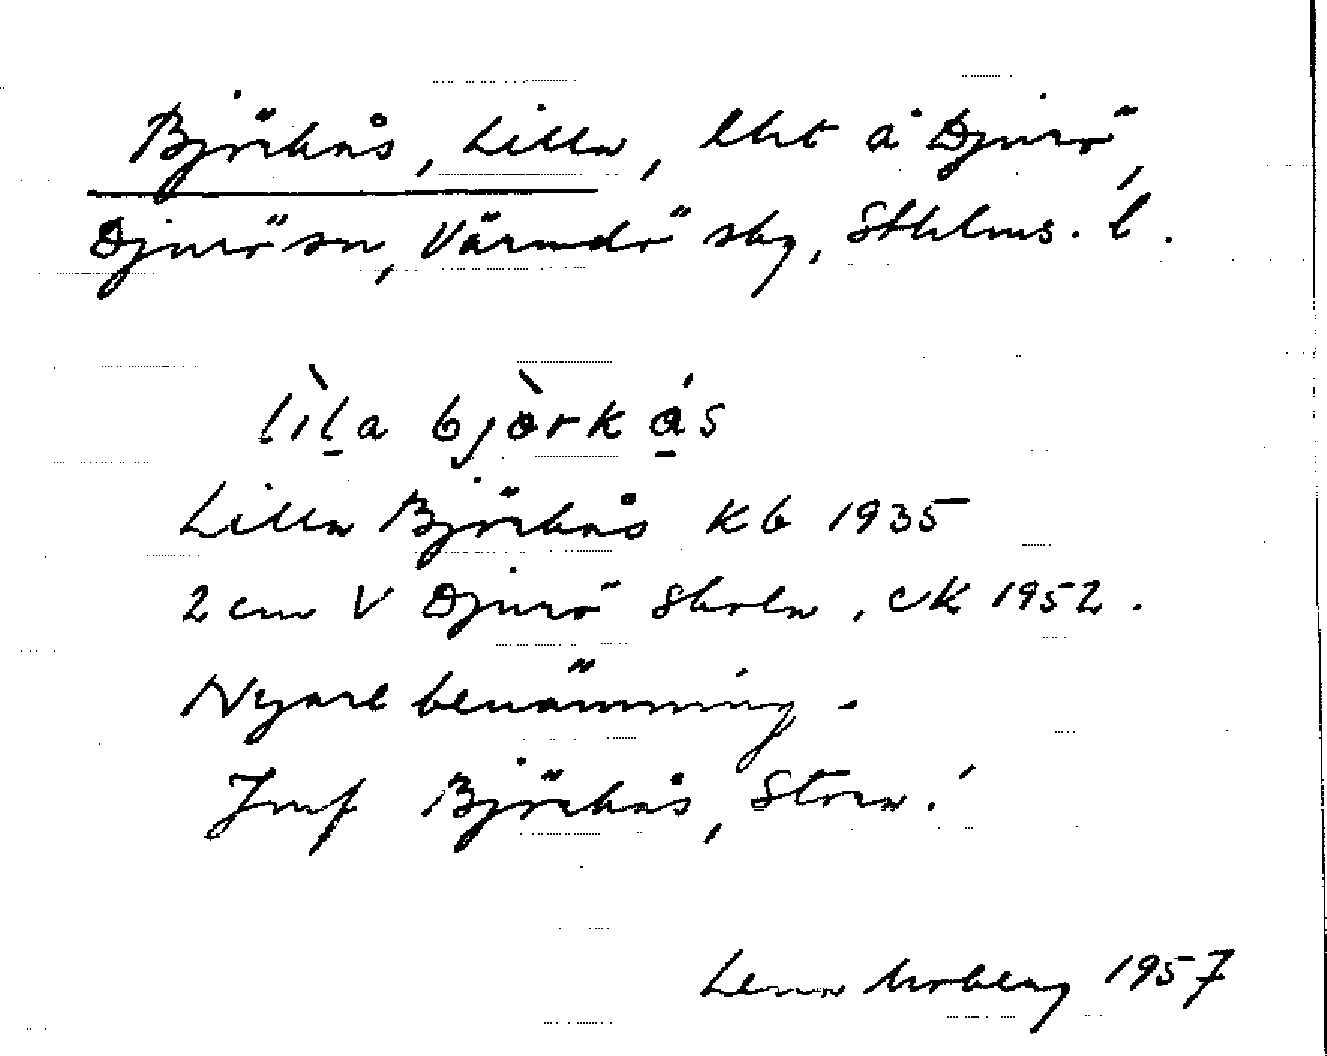 Björkås, Lilla, lht å Djurö,
Djurö sn, Värmdö skg, Sthlms. l.
lìla bjòrkås
Lilla Björkås KB 1935
2 cm V Djurö Skola, EK 1952.
Nyare benämning.
Jmf Björkås, Stora!
Lena Moberg 1957